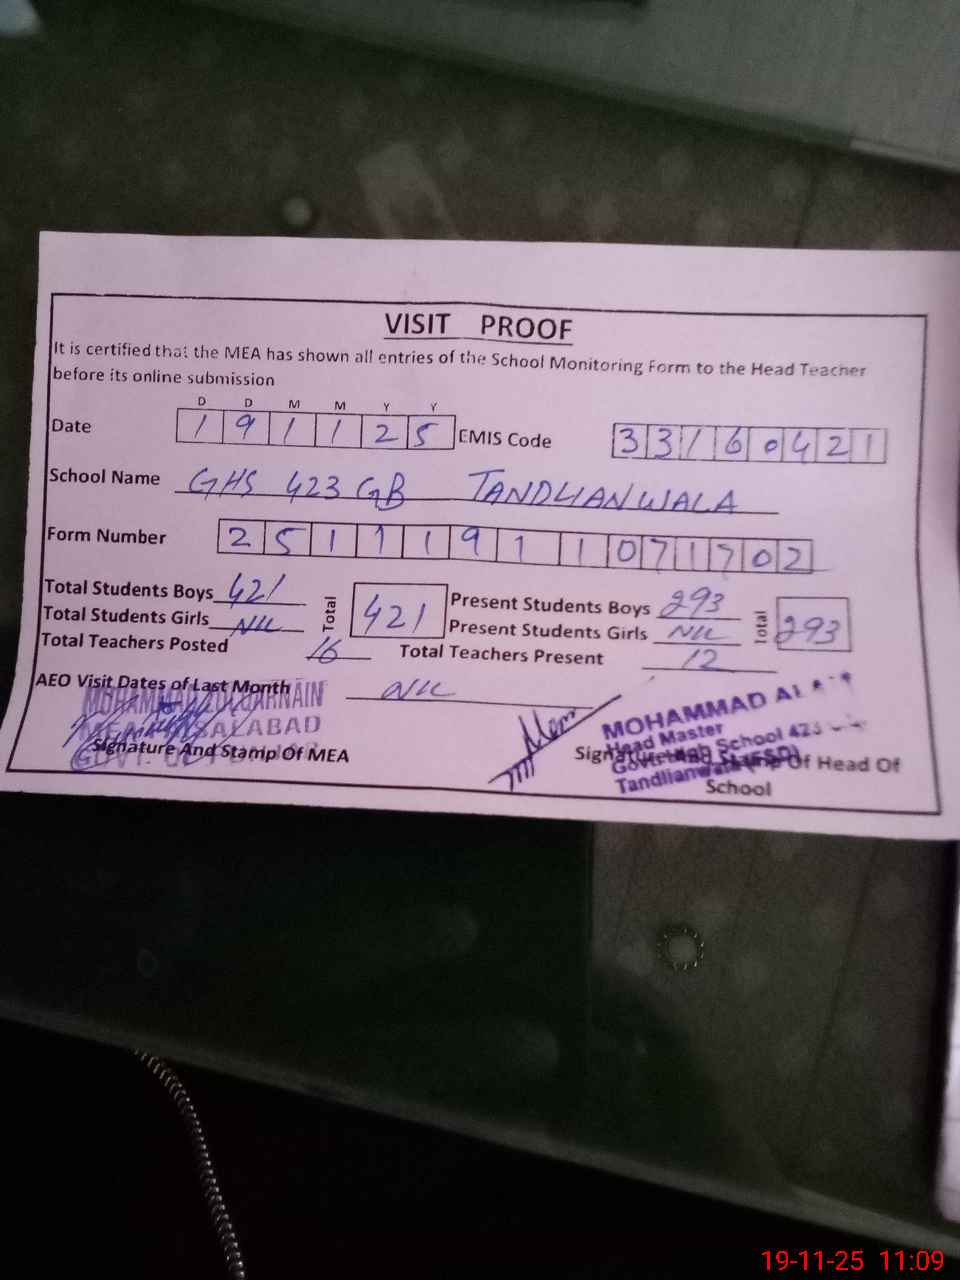 VISIT PROOF
It is certified that the MEA has shown all entries of the School Monitoring Form to the Head Teacher
before its online submission
D D M M Y Y
Date 1 9 1 1 2 5 EMIS Code 3 3 1 6 0 4 2 1
School Name GHS 423 GB TANDLIANWALA
Form Number 2 5 1 1 1 9 1 1 0 7 1 7 0 2
Total Students Boys 421 Total 421 Present Students Boys 293 Total 293
Total Students Girls NIL Present Students Girls NIL
Total Teachers Posted 16 Total Teachers Present 12
AEO Visit Dates of Last Month NIL
MOHAMMAD ZULQARNAIN
MEA FAISALABAD
GOVT. OF
Signature And Stamp Of MEA
MOHAMMAD
Head Master
Govt. High School 423
Tandlianwala (FSD)
Signature And Stamp Of Head Of
School
19-11-25 11:09